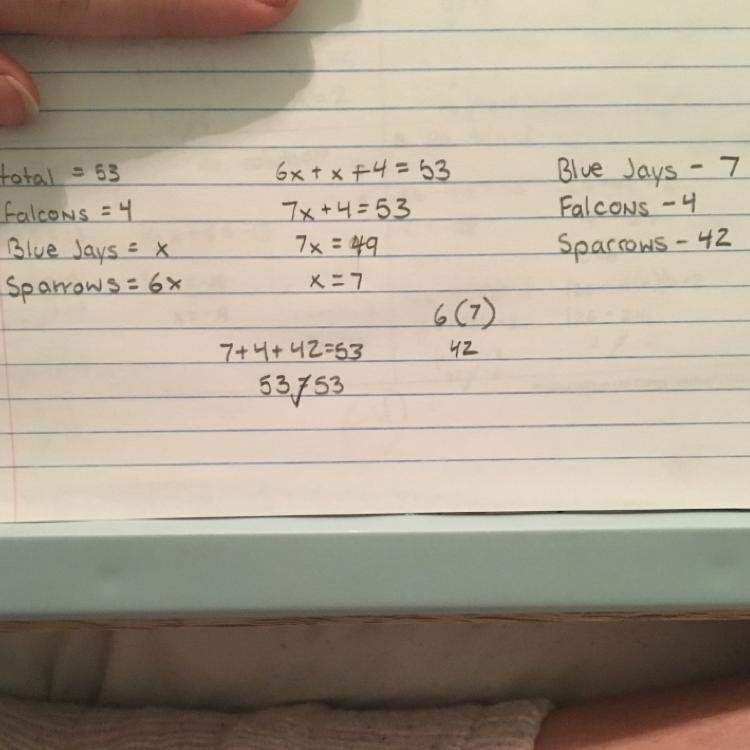 total = 53
Falcons = 4
Blue Jays = x
Sparrows = 6x
6x + x + 4 = 53
7x + 4 = 53
7x = 49
x = 7
6(7)
42
7+4+42=53
53 = 53
Blue Jays - 7
Falcons - 4
Sparrows - 42